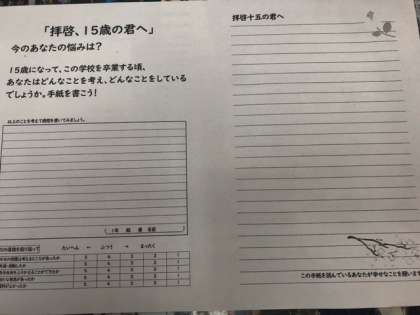 「拝啓、15歳の君へ」
今のあなたの悩みは？
15歳になって、この学校を卒業する頃、
あなたはどんなことを考え、どんなことをしている
でしょうか。手紙を書こう！
以上のことを考えて感想を書いてみましょう。
（1年 組 番 名前 ）
たいへん ← ふつう → まったく
5 4 3 2 1
5 4 3 2 1
5 4 3 2 1
5 4 3 2 1
拝啓十五の君へ
この手紙を読んでいるあなたが幸せなことを願います